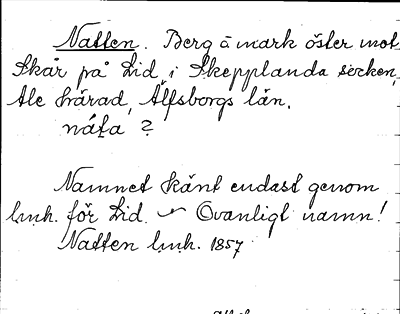 Natten. Berg å mark öster mot
Skår på Lid, i Skepplanda socken,
Ale härad, Älfsborgs län.
náta ?
Namnet känt endast genom
lmh. för Lid. ~ Ovanligt namn!
Natten lmh. 1857